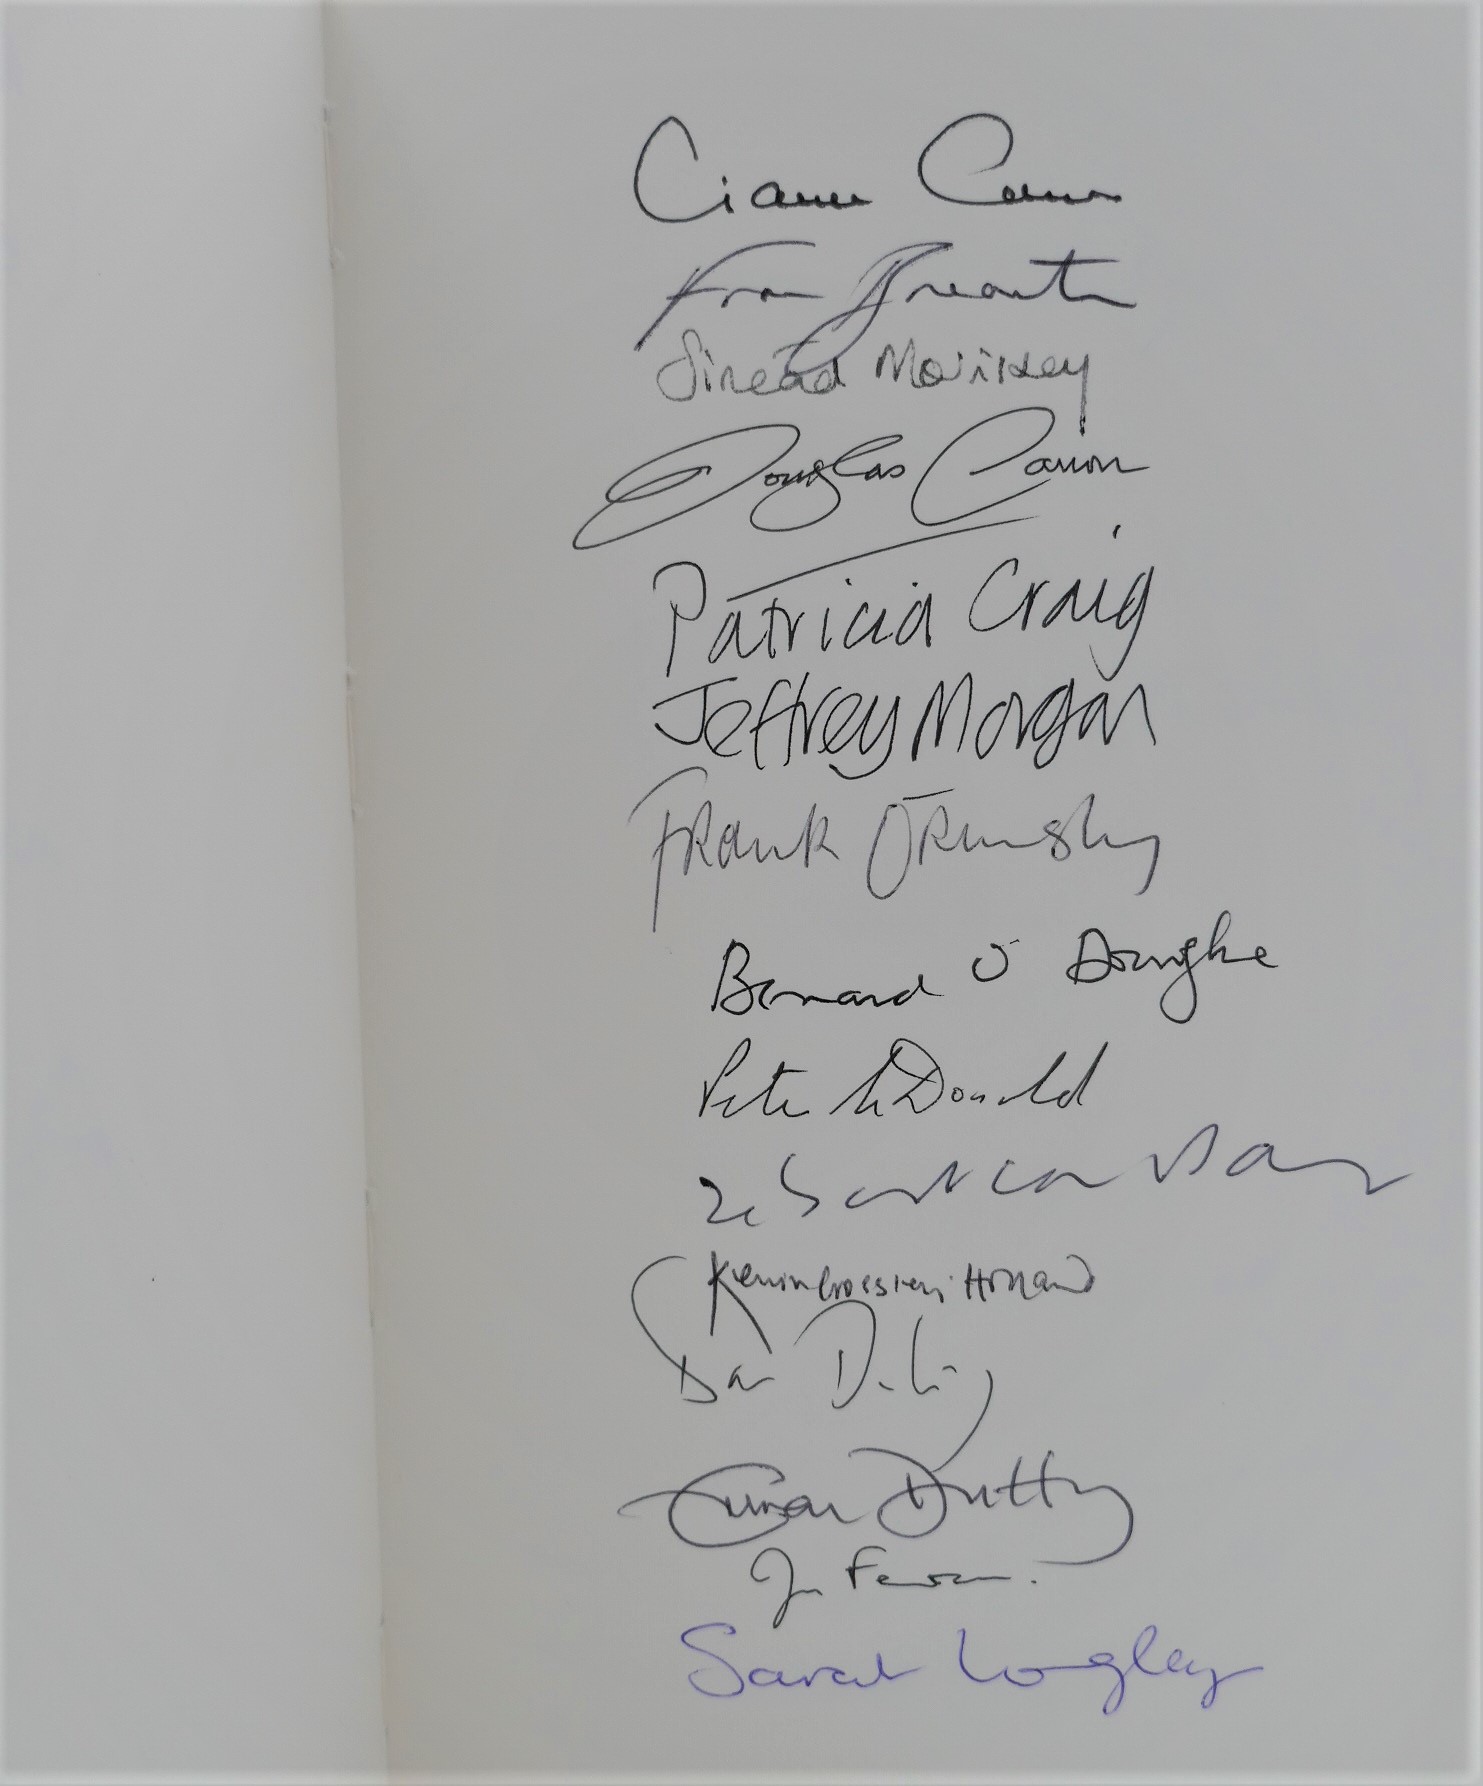 Ciaran Carson
Fran Brearton
Sinéad Morrissey
Douglas Carson
Patricia Craig
Jeffrey Morgan
Frank Ormsby
Bernard O' Donoghue
Peter McDonald
Sebastian Barry
Kevin Crossley-Holland
Dan
Duffy
Sarah Longley